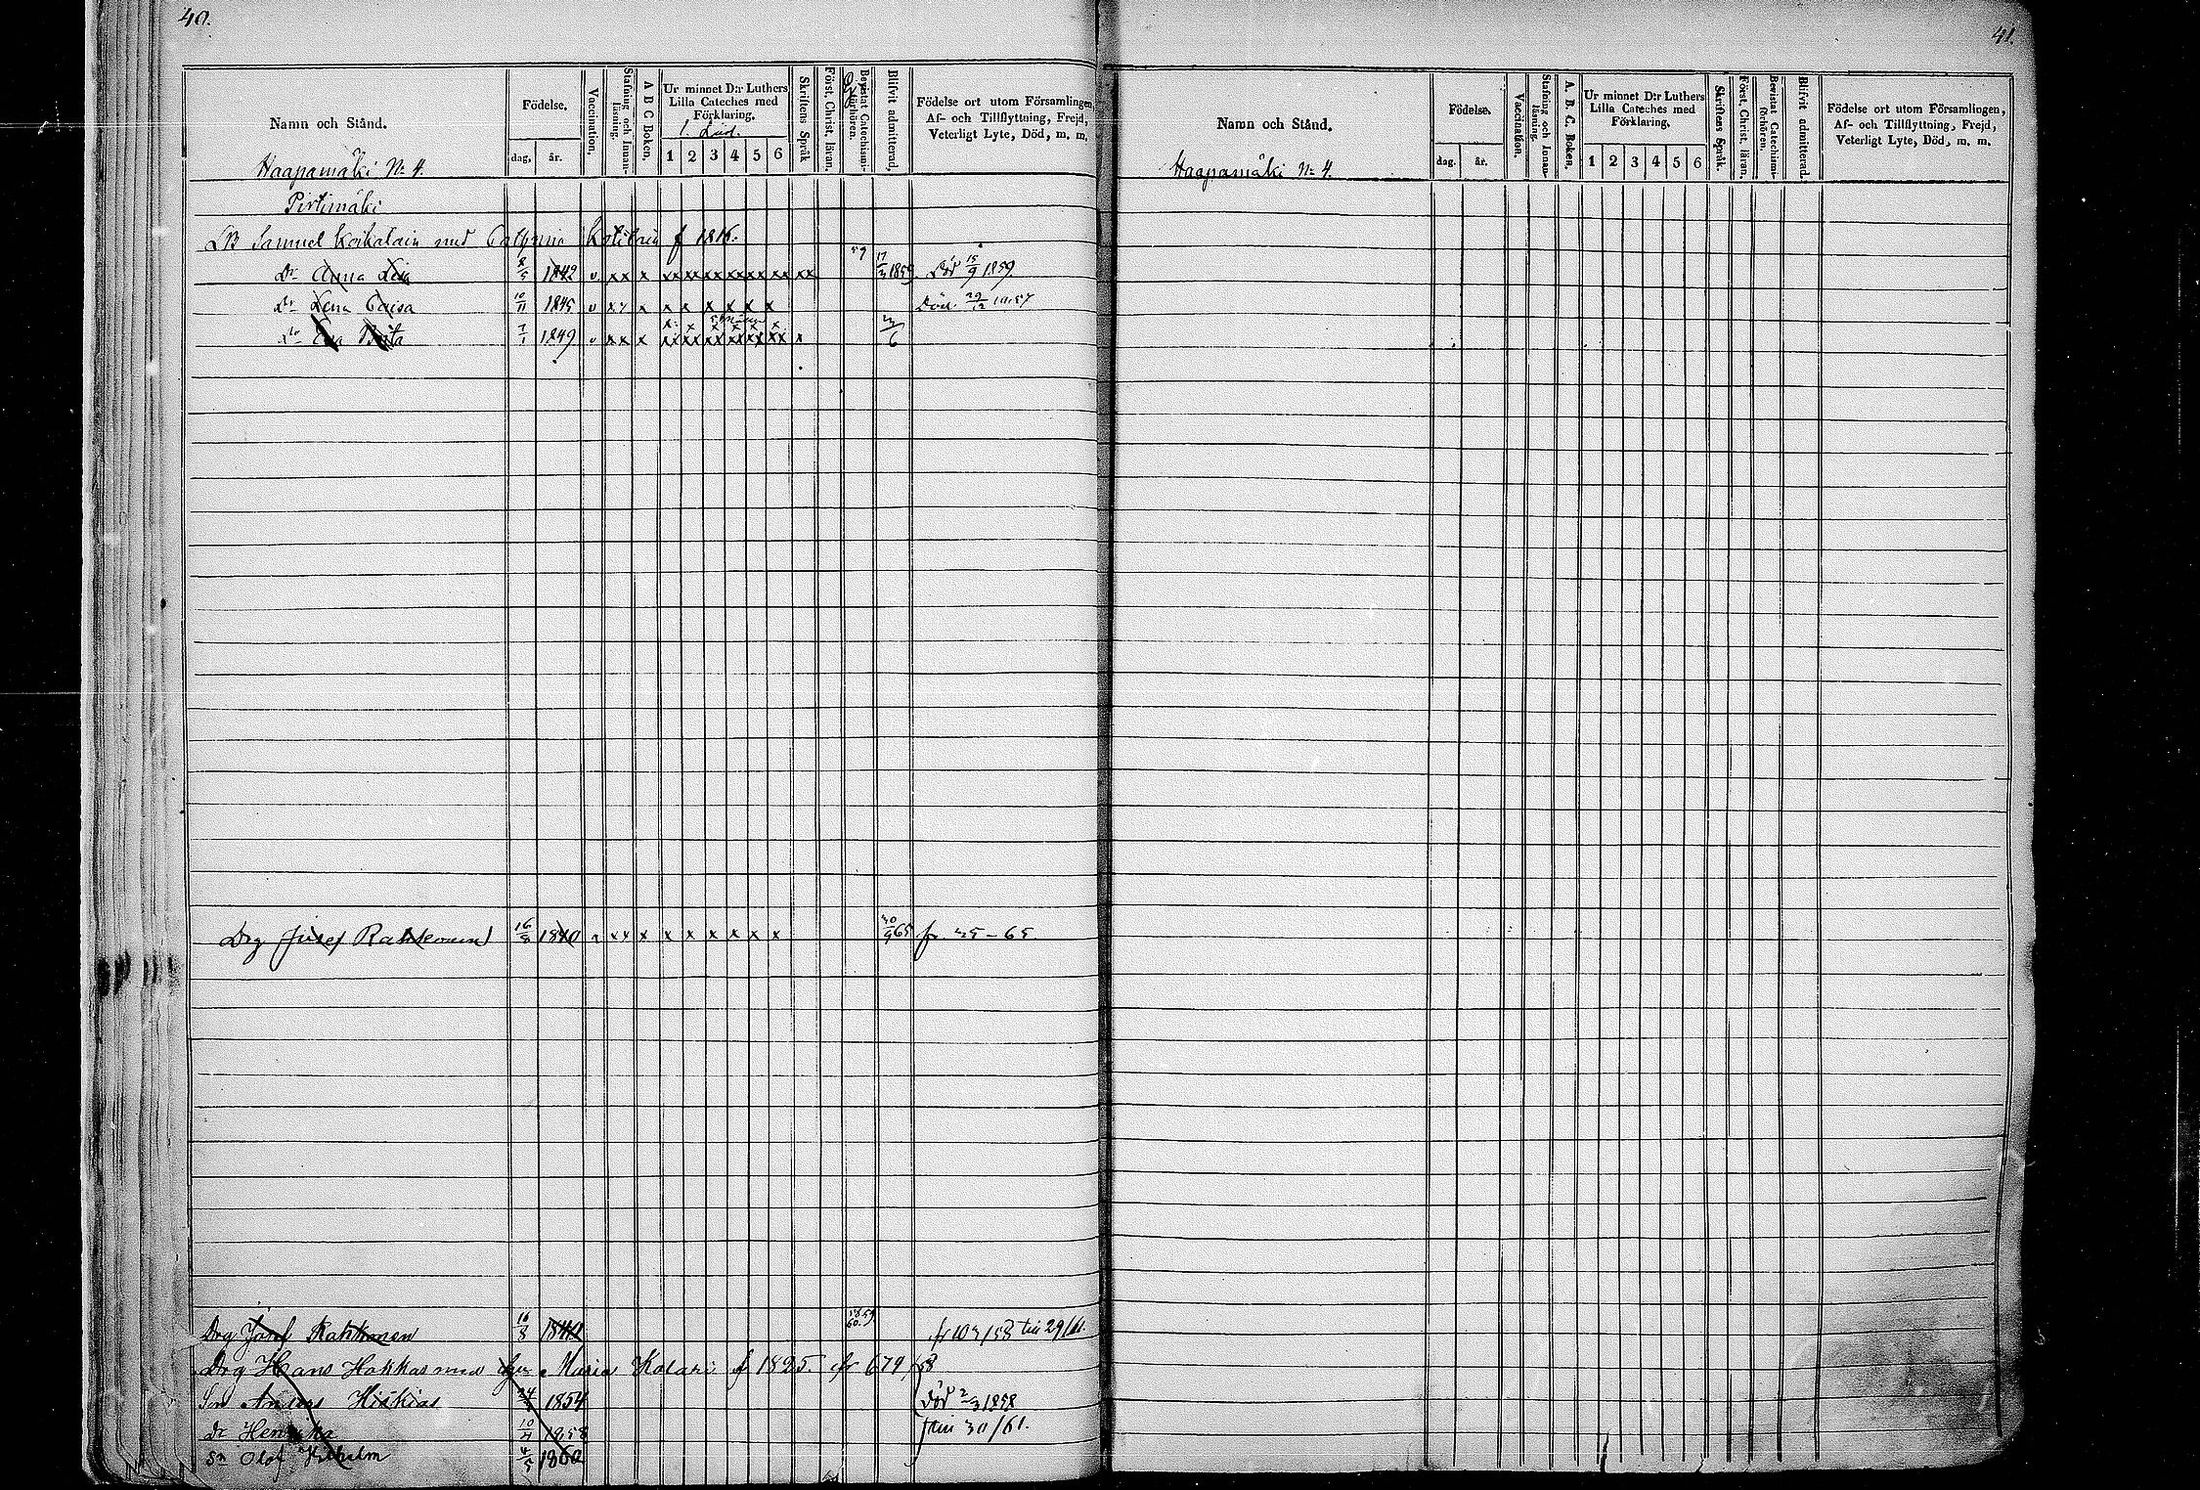 40.
Namn och Stånd.
Födelse.
dag, år.
Vaccination.
Stafning och Innanläsning.
A B C Boken,
Ur minnet D:r Luthers Lilla Cateches med Förklaring.
1 2 3 4 5 6
Skriftens Språk
Först. Christ. läran.
Bevistat Catechismiförhören.
Blifvit admitterad,
Födelse ort utom Församlingen,
Af- och Tillflyttning, Frejd,
Veterligt Lyte, Död, m. m.
Haapamäki No 4.
Pirtimäki
Samuel med f 1816.
Dr Anna Lisa 8/5 1842 v xx x xx xx xx xx xx xx xx 59 17/3 1859 Död 15/9 1859
Dr Lena Caisa 10/11 1845 v xx x x x x x x x Död 29/12 1857
Dr Eva Brita 7/1 1849 v xx x xx xx xx xx xx xx x
Drg Josef Rahkonen 16/8 1840 xx x x x x x x x 65 fr. 35-65
Drg Josef Rahkonen 16/8 18 1859 60. fr 103/58 till 29/61.
Drg Hans Hakkas med Maria f 1825. fr 679/58
Son Anders Hiskias 24 1854 Död 2/3 1858
Dr Henrika 10 1858 till 30/61.
Sn Olof Vilhelm 4/5 1860
41.
Namn och Stånd.
Födelse.
dag. år.
Vaccination.
Stafning och Innanläsning.
A. B. C. Boken.
Ur minnet D:r Luthers Lilla Cateches med Förklaring.
1 2 3 4 5 6
Skriftens Språk.
Först. Christ. läran.
Bevistat Catechimiförhören.
Blifvit admitterad.
Födelse ort utom Församlingen,
Af- och Tillflyttning, Frejd,
Veterligt Lyte, Död, m. m.
Haapamäki No 4.